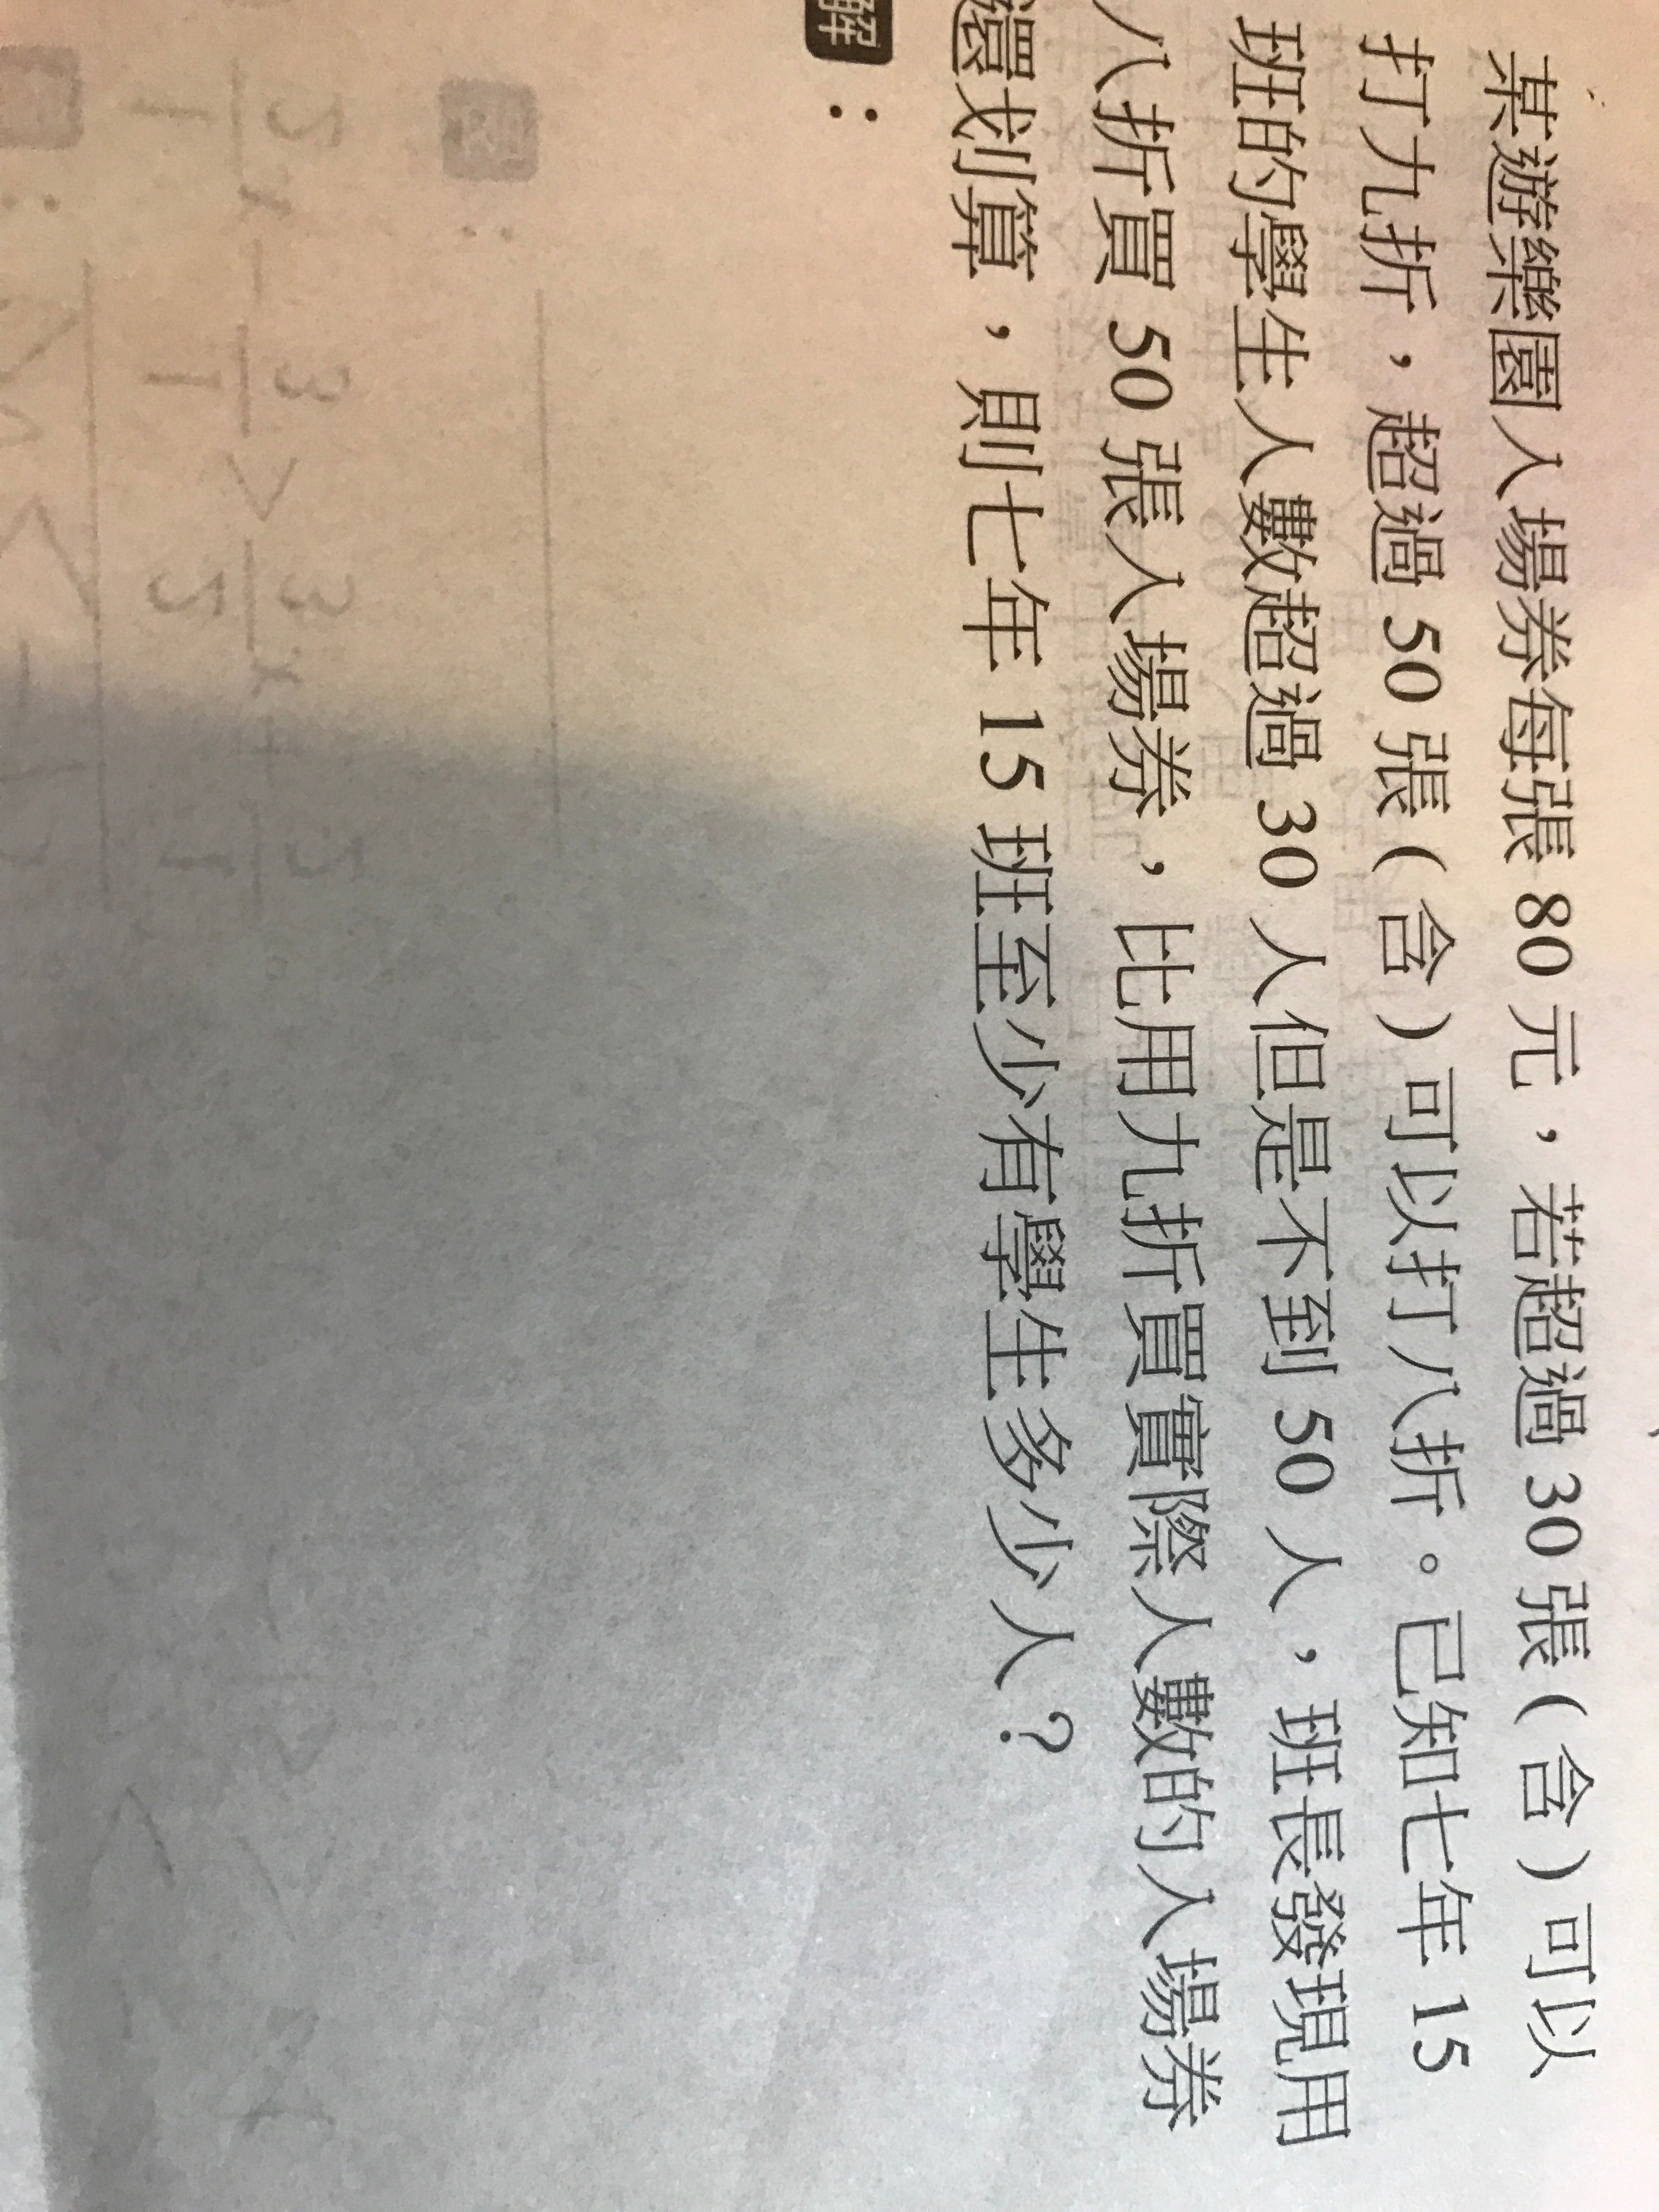 某遊樂園入場券每張 80 元，若超過 30 張（含）可以
打九折，超過 50 張（含）可以打八折。已知七年 15
班的學生人數超過 30 人但是不到 50 人，班長發現用
八折買 50 張入場券，比用九折買實際人數的入場券
還划算，則七年 15 班至少有學生多少人？
解：